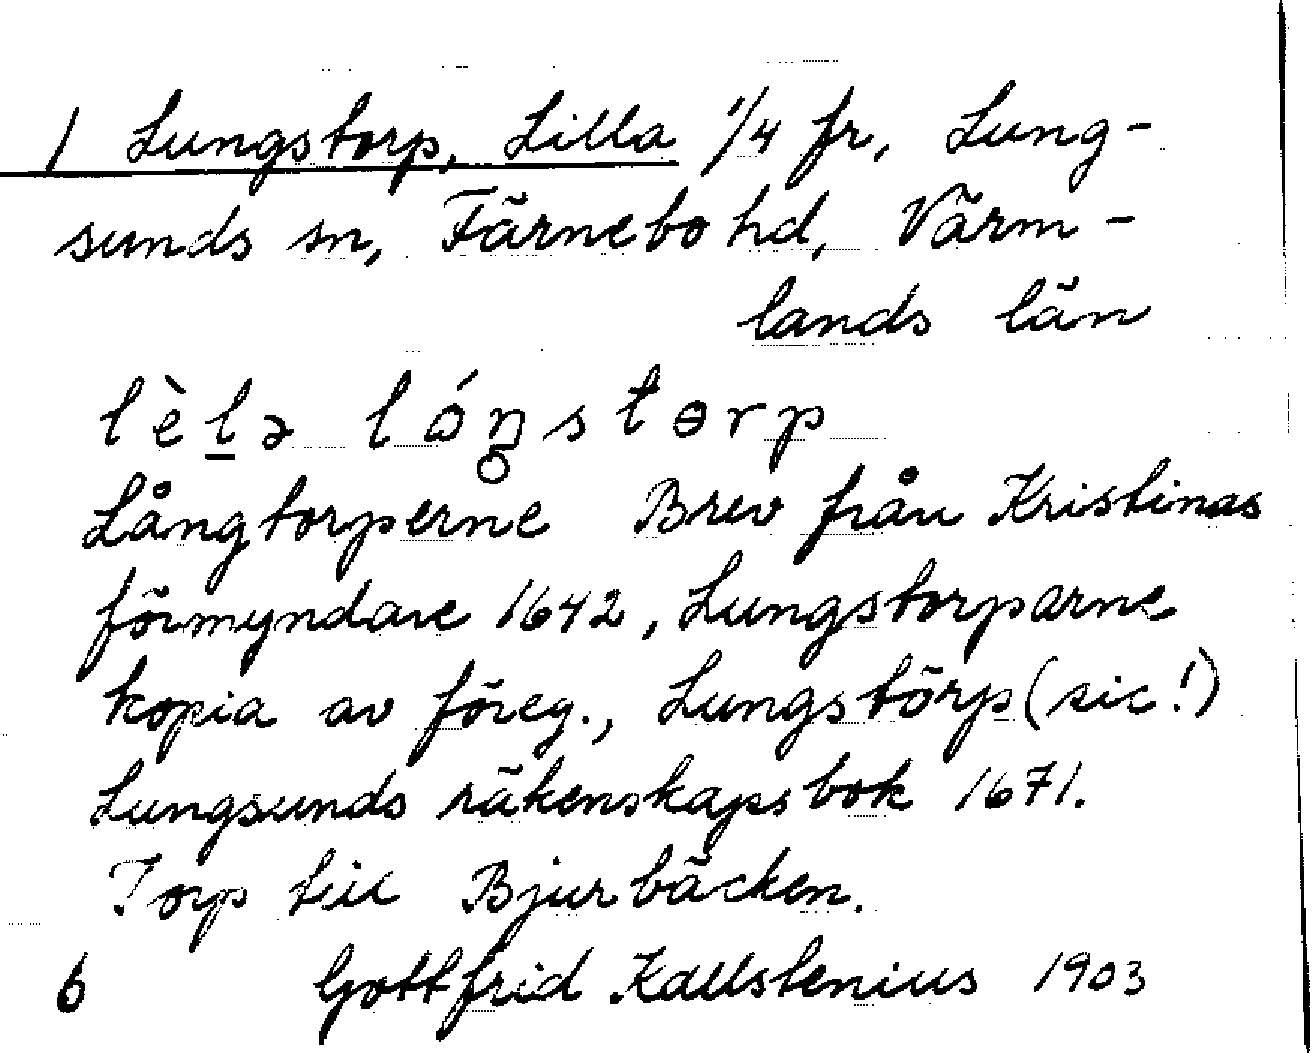 1 Lungstorp, Lilla 1/4 fr, Lung-
sunds sn, Färnebo hd, Värm-
lands län
lèlə lóŋ̥stɵrp
Långtorperne Brev från Kristinas
förmyndare 1642, Lungstorparne
kopia av föreg., Lungstörp (sic!)
Lungsunds räkenskapsbok 1671.
Torp till Bjurbäcken.
6 Gottfrid Kallstenius 1903